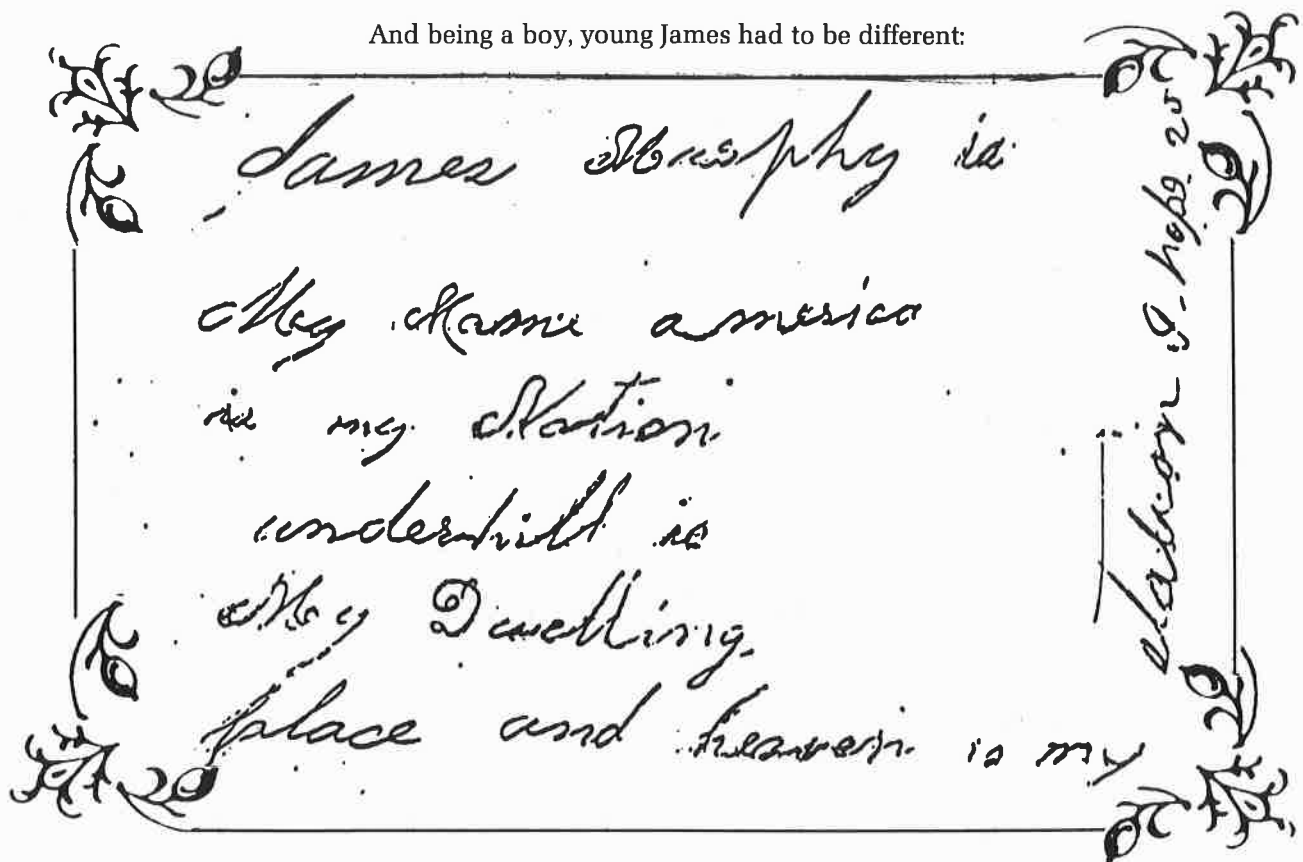 And being a boy, young James had to be different:
James Murphy is
My Name america
is my Nation
underhill is
My Dwelling
place and heaven is my
I hope